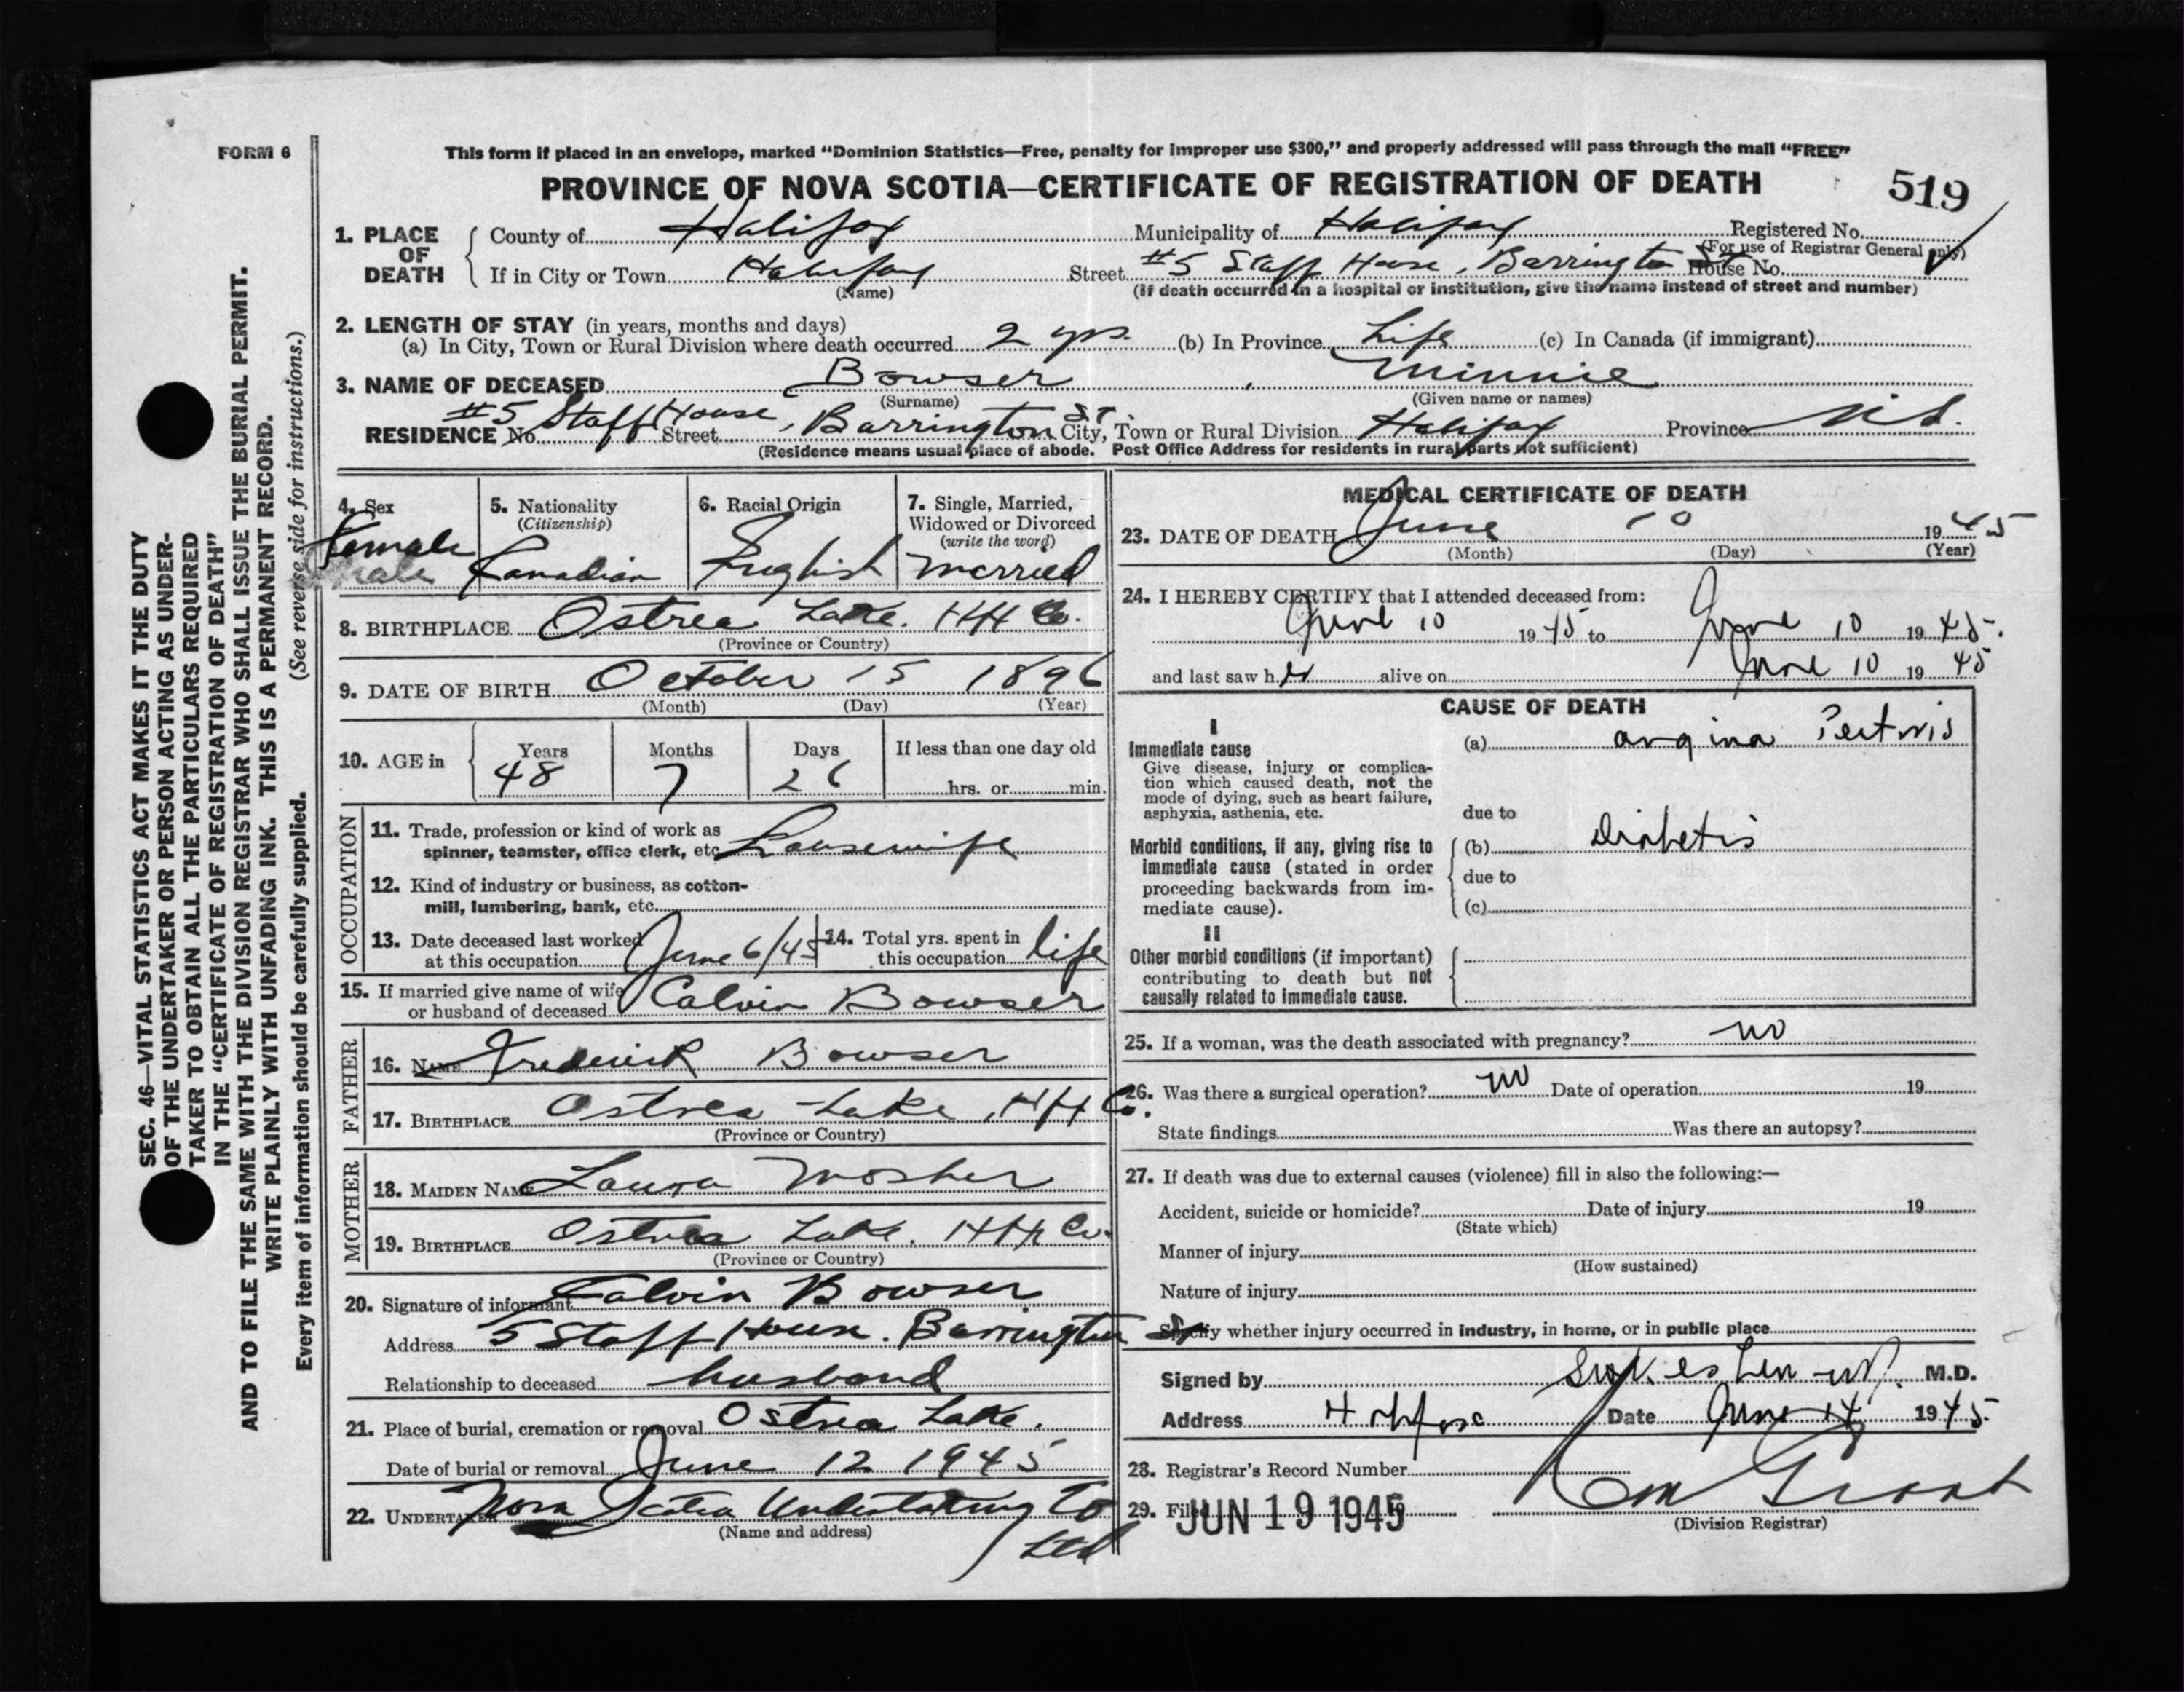 FORM 6
This form if placed in an envelope, marked “Dominion Statistics—Free, penalty for improper use $300,” and properly addressed will pass through the mail “FREE”
PROVINCE OF NOVA SCOTIA—CERTIFICATE OF REGISTRATION OF DEATH
519
1. PLACE OF DEATH
County of Halifax Municipality of Halifax Registered No.
(For use of Registrar General only)
If in City or Town Halifax Street #5 Staff House, Barrington St House No.
(Name) (If death occurred in a hospital or institution, give the name instead of street and number)
2. LENGTH OF STAY (in years, months and days)
(a) In City, Town or Rural Division where death occurred 2 yrs. (b) In Province Life (c) In Canada (if immigrant)
3. NAME OF DECEASED Bowser, Minnie
(Surname) (Given name or names)
RESIDENCE No. #5 Staff House Street, Barrington St. City, Town or Rural Division Halifax Province N.S.
(Residence means usual place of abode. Post Office Address for residents in rural parts not sufficient)
4. Sex
Female
male
5. Nationality
(Citizenship)
Canadian
6. Racial Origin
English
7. Single, Married,
Widowed or Divorced
(write the word)
Married
8. BIRTHPLACE Ostrea Lake. Hfx Co.
(Province or Country)
9. DATE OF BIRTH October 15 1896
(Month) (Day) (Year)
10. AGE in
Years 48
Months 7
Days 26
If less than one day old
hrs. or min.
OCCUPATION
11. Trade, profession or kind of work as
spinner, teamster, office clerk, etc. Housewife
12. Kind of industry or business, as cotton-
mill, lumbering, bank, etc.
13. Date deceased last worked
at this occupation June 6/45
14. Total yrs. spent in
this occupation life
15. If married give name of wife
or husband of deceased Calvin Bowser
FATHER
16. NAME Frederick Bowser
17. BIRTHPLACE Ostrea Lake, Hfx Co.
(Province or Country)
MOTHER
18. MAIDEN NAME Laura Mosher
19. BIRTHPLACE Ostrea Lake. Hfx Co.
(Province or Country)
20. Signature of informant Calvin Bowser
Address 5 Staff House. Barrington St
Relationship to deceased husband
21. Place of burial, cremation or removal Ostrea Lake.
Date of burial or removal June 12 1945
22. UNDERTAKER Nova Scotia Undertaking Co
(Name and address)
Ltd
MEDICAL CERTIFICATE OF DEATH
23. DATE OF DEATH June 10 1945
(Month) (Day) (Year)
24. I HEREBY CERTIFY that I attended deceased from:
June 10 1945 to June 10 1945.
and last saw her alive on June 10 1945
CAUSE OF DEATH
I
Immediate cause
Give disease, injury or complica-
tion which caused death, not the
mode of dying, such as heart failure,
asphyxia, asthenia, etc.
(a) angina Pectoris
due to
Morbid conditions, if any, giving rise to
immediate cause (stated in order
proceeding backwards from im-
mediate cause).
(b) Diabetis
due to
(c)
II
Other morbid conditions (if important)
contributing to death but not
causally related to immediate cause.
25. If a woman, was the death associated with pregnancy? no
26. Was there a surgical operation? no Date of operation 19
State findings Was there an autopsy?
27. If death was due to external causes (violence) fill in also the following:—
Accident, suicide or homicide? Date of injury 19
(State which)
Manner of injury
(How sustained)
Nature of injury
Specify whether injury occurred in industry, in home, or in public place
Signed by M.D.
Address Halifax Date June 14 1945.
28. Registrar's Record Number
29. Filed JUN 19 1945
Grant
(Division Registrar)
SEC. 46—VITAL STATISTICS ACT MAKES IT THE DUTY
OF THE UNDERTAKER OR PERSON ACTING AS UNDER-
TAKER TO OBTAIN ALL THE PARTICULARS REQUIRED
IN THE “CERTIFICATE OF REGISTRATION OF DEATH”
AND TO FILE THE SAME WITH THE DIVISION REGISTRAR WHO SHALL ISSUE THE BURIAL PERMIT.
WRITE PLAINLY WITH UNFADING INK. THIS IS A PERMANENT RECORD.
Every item of information should be carefully supplied. (See reverse side for instructions.)